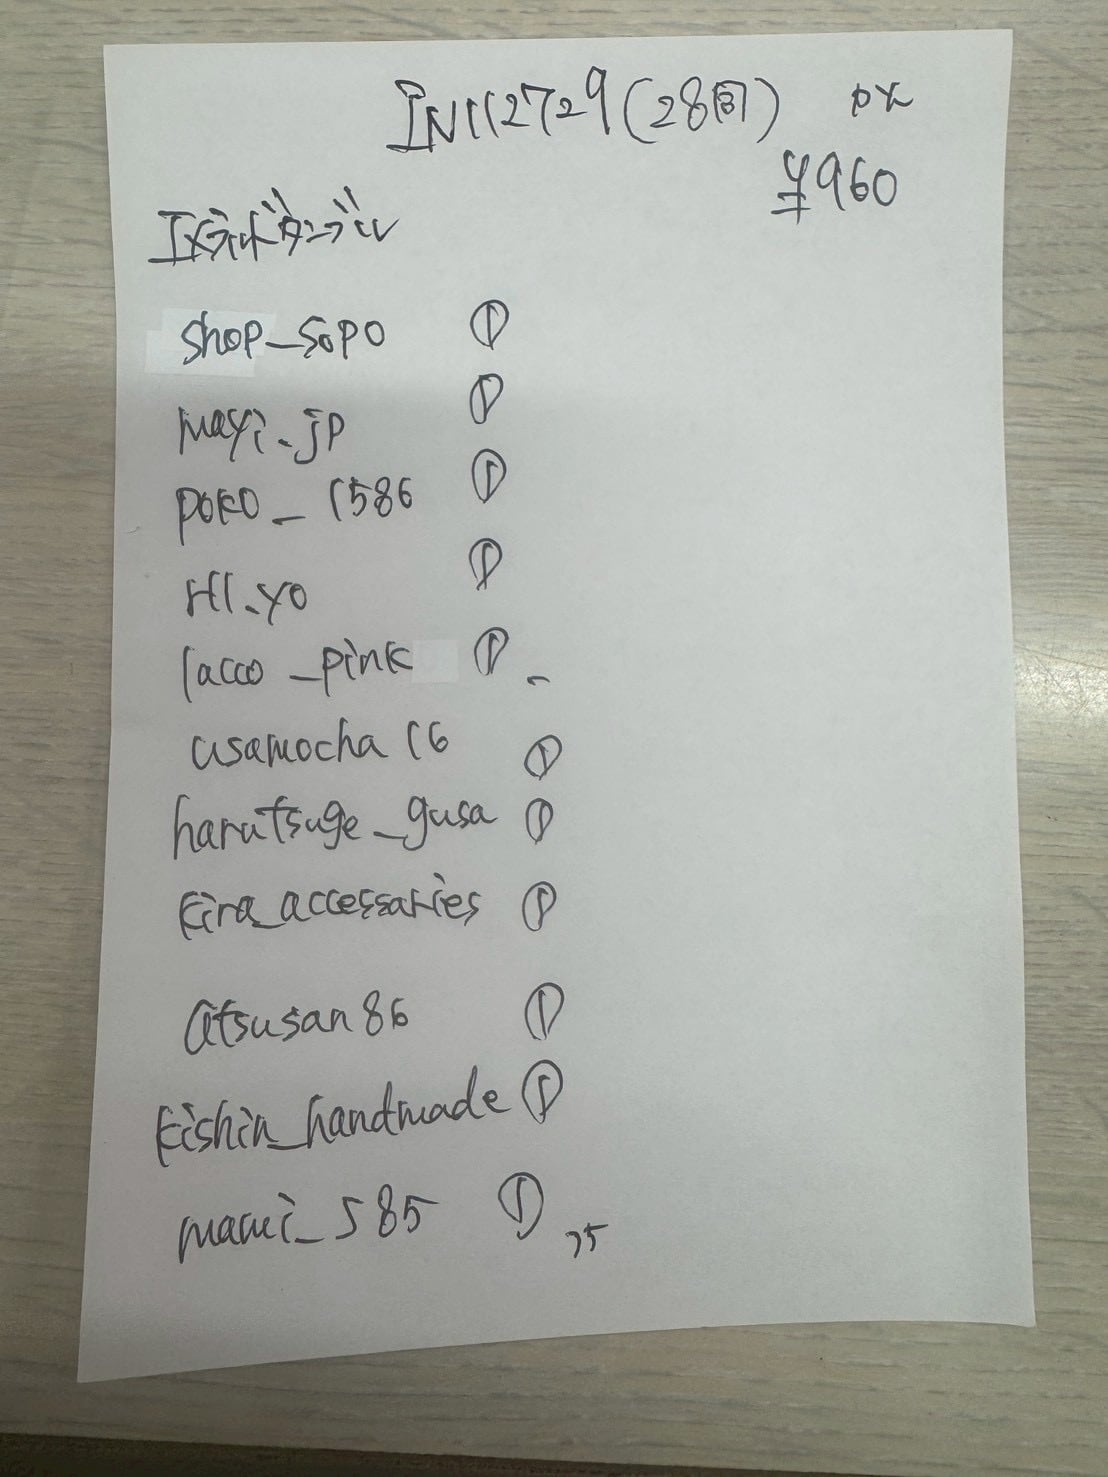 IN112729(28回)
¥960
shop_sopo ①
mayi_jp ①
poko_1586 ①
HI.yo ①
lacco_pink ①
usamocha16 ①
harutsuge_gusa ①
kira_accessaries ①
atsusan86 ①
kishin_handmade ①
mami_585 ①